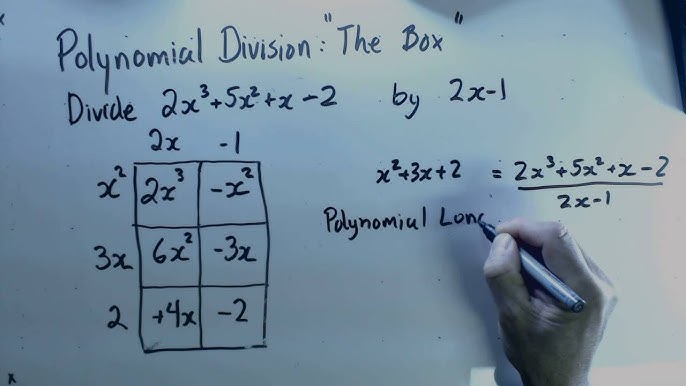 Polynomial Division: "The Box"
Divide 2x³+5x²+x-2 by 2x-1
2x -1
x² 2x³ -x²
3x 6x² -3x
2 +4x -2
x²+3x+2 = 2x³+5x²+x-2
2x-1
Polynomial Long
x